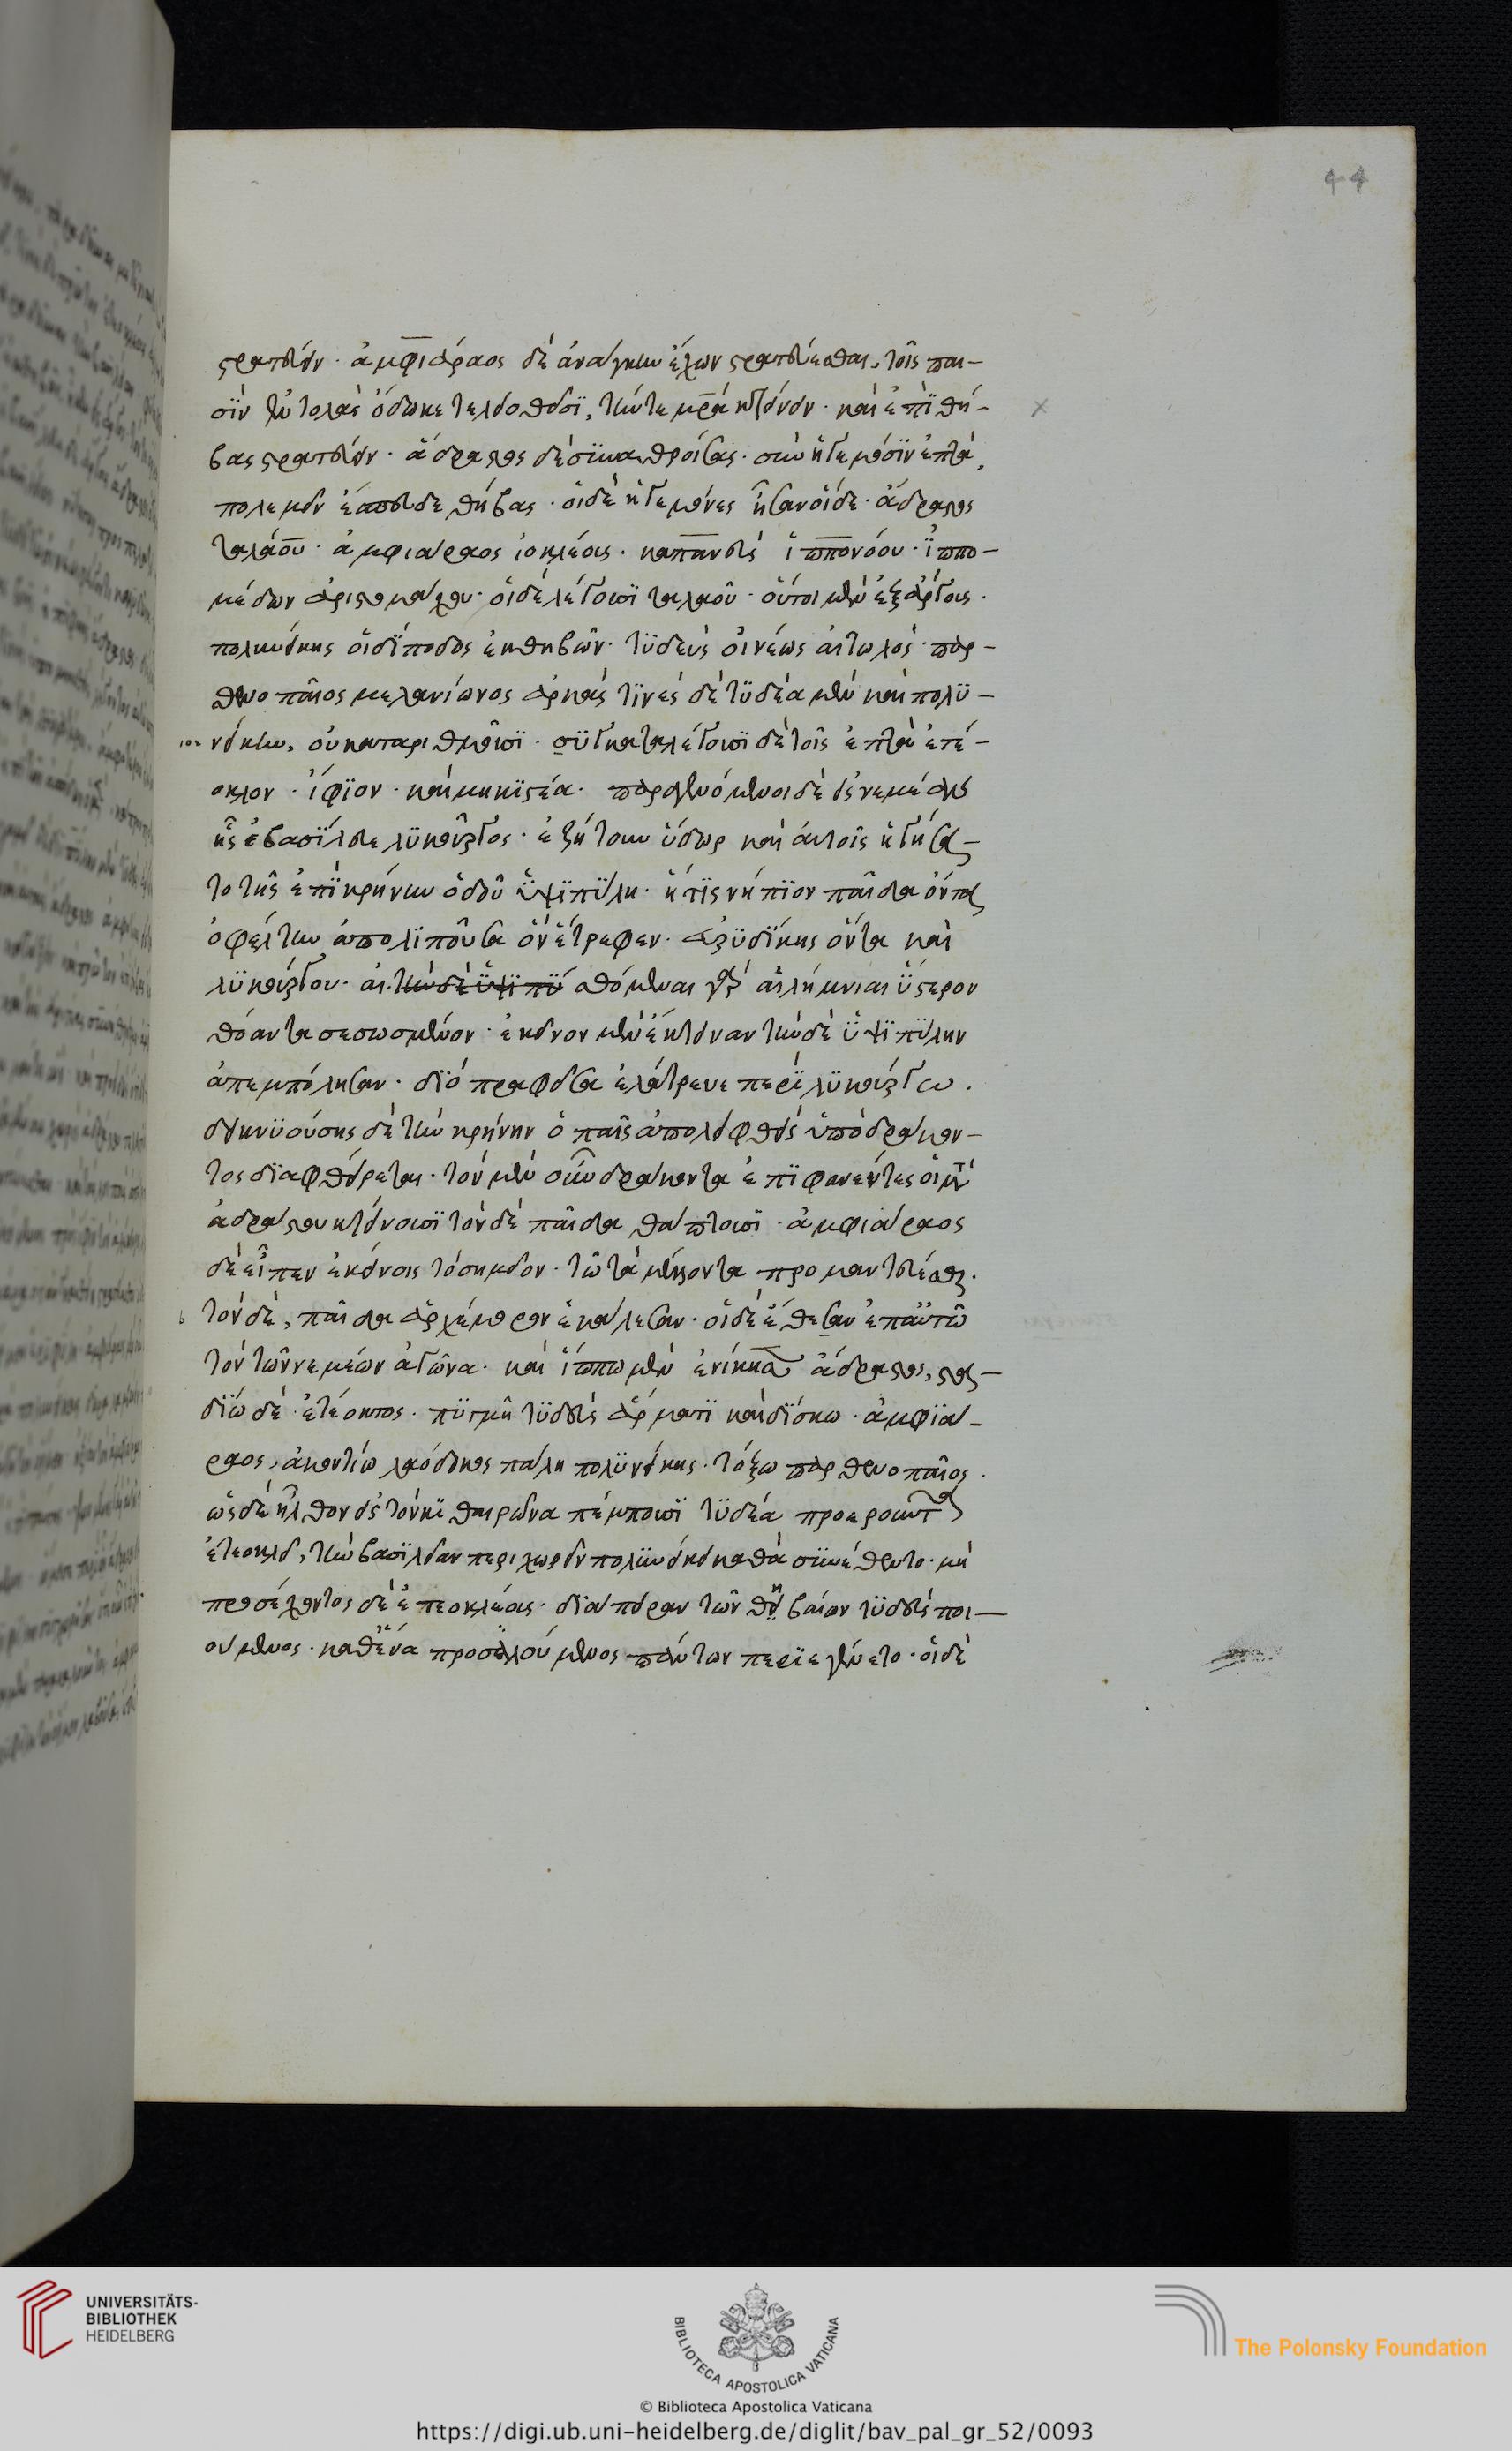 44
στρατεύειν· ἀμφιάραος δὲ ἀνάγκην ἔχων στρατεύεσθαι, τοῖς παι–
σὶν ἐντολὰς ἔδωκε τελειωθεῖσι, τήν τε μρ̅α κτείνειν· καὶ ἐπὶ θή–
βας στρατεύειν· ἄδραστος δὲ συναθροίσας· σὺν ἡγεμόσιν ἑπτὰ,
πολεμεῖν ἔσπευδε θήβας· οἱ δὲ ἡγεμόνες ἦσαν οἵδε· ἄδραστος
ταλάου· ἀμφιάραος ὀϊκλέους· καπανεὺς ἱππονόου· ἱππο–
μέδων ἀριστομάχου· οἱ δὲ λέγουσι ταλαοῦ· οὗτοι μὲν ἐξ ἄργους·
πολυνείκης οἰδίποδος ἐκ θηβῶν· τυδεὺς οἰνέως αἰτωλός· παρ–
θενοπαῖος μελανίωνος ἀρκάς τινὲς δὲ τυδέα μὲν καὶ πολυ–
νείκην, οὐ καταριθμοῦσι· συγκαταλέγουσι δὲ τοῖς ἑπτὰ ἐτέ–
οκλον· ἴφιον· καὶ μηκιστέα· παραγενόμενοι δὲ εἰς νεμέαν
ἧς ἐβασίλευε λυκοῦργος· ἐζήτουν ὕδωρ καὶ αὐτοῖς ἡγήσα–
το τῆς ἐπὶ κρήνην ὁδοῦ ὑψιπύλη· ἥτις νήπιον παῖδα ὄντα
ὀφέλτην ἀπολιποῦσα ὃν ἔτρεφεν· εὐρυδίκης ὄντα καὶ
λυκούργου· αἰ. τὴν δὲ ὑψιπύ αθόμεναι γὰρ αἱ λήμνιαι ὕστερον
θόαντα σεσωσμένον· ἐκεῖνον μὲν ἔκτειναν τὴν δὲ ὑψιπύλην
ἀπεμπόλησαν· διὸ πραθεῖσα ἐλάτρευε περὶ λυκούργω.
δεικνυούσης δὲ τὴν κρήνην ὁ παῖς ἀπολειφθεὶς ὑπὸ δράκον–
τος διαφθείρεται· τὸν μὲν οὖν δράκοντα ἐπιφανέντες οἱ μετὰ
ἀδράστου κτείνουσι τὸν δὲ παῖδα θάπτουσι· ἀμφιάραος
δὲ εἶπεν ἐκείνοις τὸ σημεῖον· τῶ τὰ μέλλοντα προμαντεύεσθαι.
τὸν δὲ, παῖδα ἀρχέμορον ἐκάλεσαν· οἱ δὲ ἔθεσαν ἐπ αὐτῶ
τὸν τῶν νεμέων ἀγῶνα· καὶ ἵππω μὲν ἐνίκησεν ἄδραστος, στα–
δίω δὲ· ἐτέοκλος· πυγμῆ τυδεὺς ἅρματι καὶ δίσκω· ἀμφιά–
ραος, ἀκοντίω λαόδικος πάλη πολυνείκης· τόξω παρθενοπαῖος.
ὡς δὲ ἦλθον εἰς τὸν κιθαιρῶνα πέμπουσι τυδέα προεροῦντα
ἐτεοκλεῖ, τὴν βασιλείαν περιχωρεῖν πολυνείκει καθὰ συνέθεντο· μὴ
προσέχοντος δὲ ἐτεοκλέους· διάπειραν τῶν θηβαίων τυδεὺς ποι–
ούμενος· καθ ἕνα προσαλούμενος πάντων περιεγένετο· οἱ δὲ
UNIVERSITÄTS-
BIBLIOTHEK
HEIDELBERG
BIBLIOTECA APOSTOLICA VATICANA
The Polonsky Foundation
© Biblioteca Apostolica Vaticana
https://digi.ub.uni-heidelberg.de/diglit/bav_pal_gr_52/0093